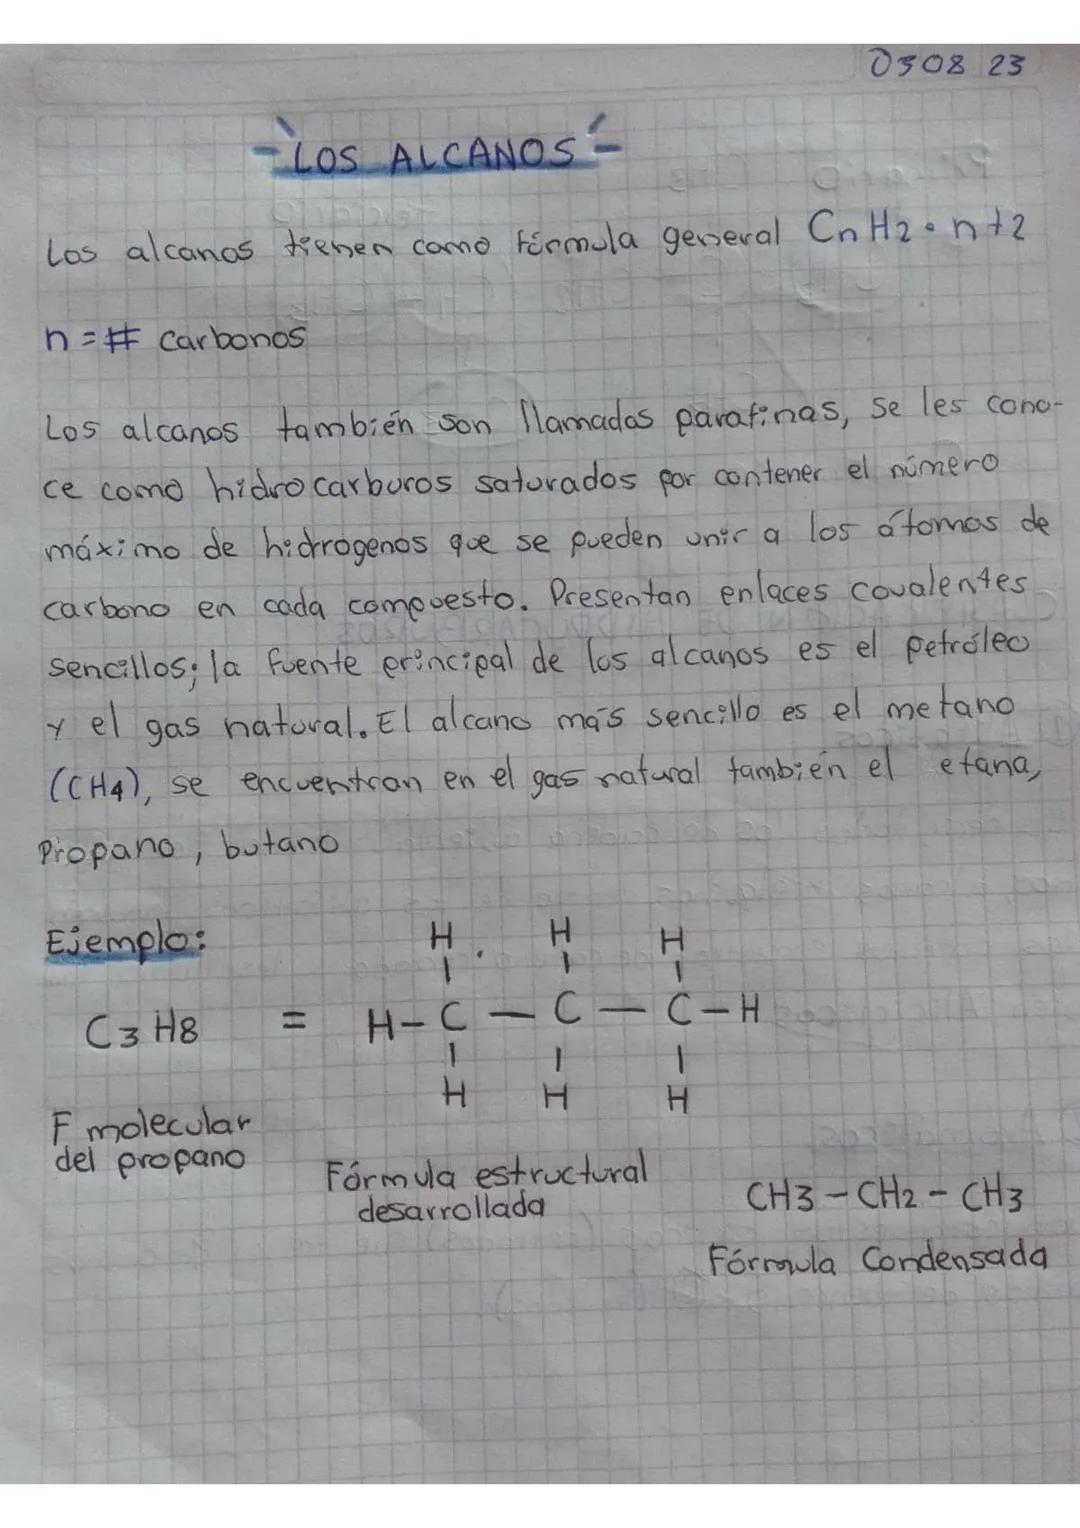 0308 23
LOS ALCANOS
Los alcanos tienen como fórmula general CnH2•n+2
n = # carbonos
Los alcanos también son llamados parafinas, se les cono-
ce como hidrocarburos saturados por contener el número
máximo de hidrogenos que se pueden unir a los átomos de
carbono en cada compuesto. Presentan enlaces covalentes
sencillos; la fuente principal de los alcanos es el petróleo
y el gas natural. El alcano más sencillo es el metano
(CH4), se encuentran en el gas natural también el etana,
Propano, butano
Ejemplo:
H H H
C3H8 = H-C-C-C-H
H H H
F molecular
del propano
Fórmula estructural
desarrollada
CH3-CH2-CH3
Fórmula Condensada